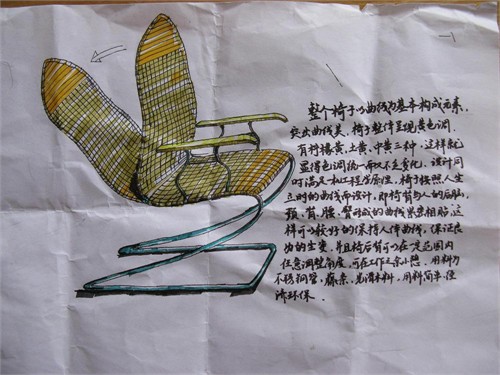 整个椅子以曲线为基本构成元素,
突出曲线美,椅子整体呈现黄色调,
有柠檬黄、土黄、中黄三种,这样就
显得色调统一而又不乏变化,设计同
时满足人机工程学原理,椅子按照人坐
立时的曲线而设计,即椅背与人的
颈、背、腰、臀形成的曲线紧密相贴,这
样可以较好的保持人体曲线,保证良
好的坐姿,并且椅后背可以在一定范围内
任意调整角度,可在工作之余小憩.用料为
不锈钢管,藤条,光滑木料,用料简单,经
济环保.